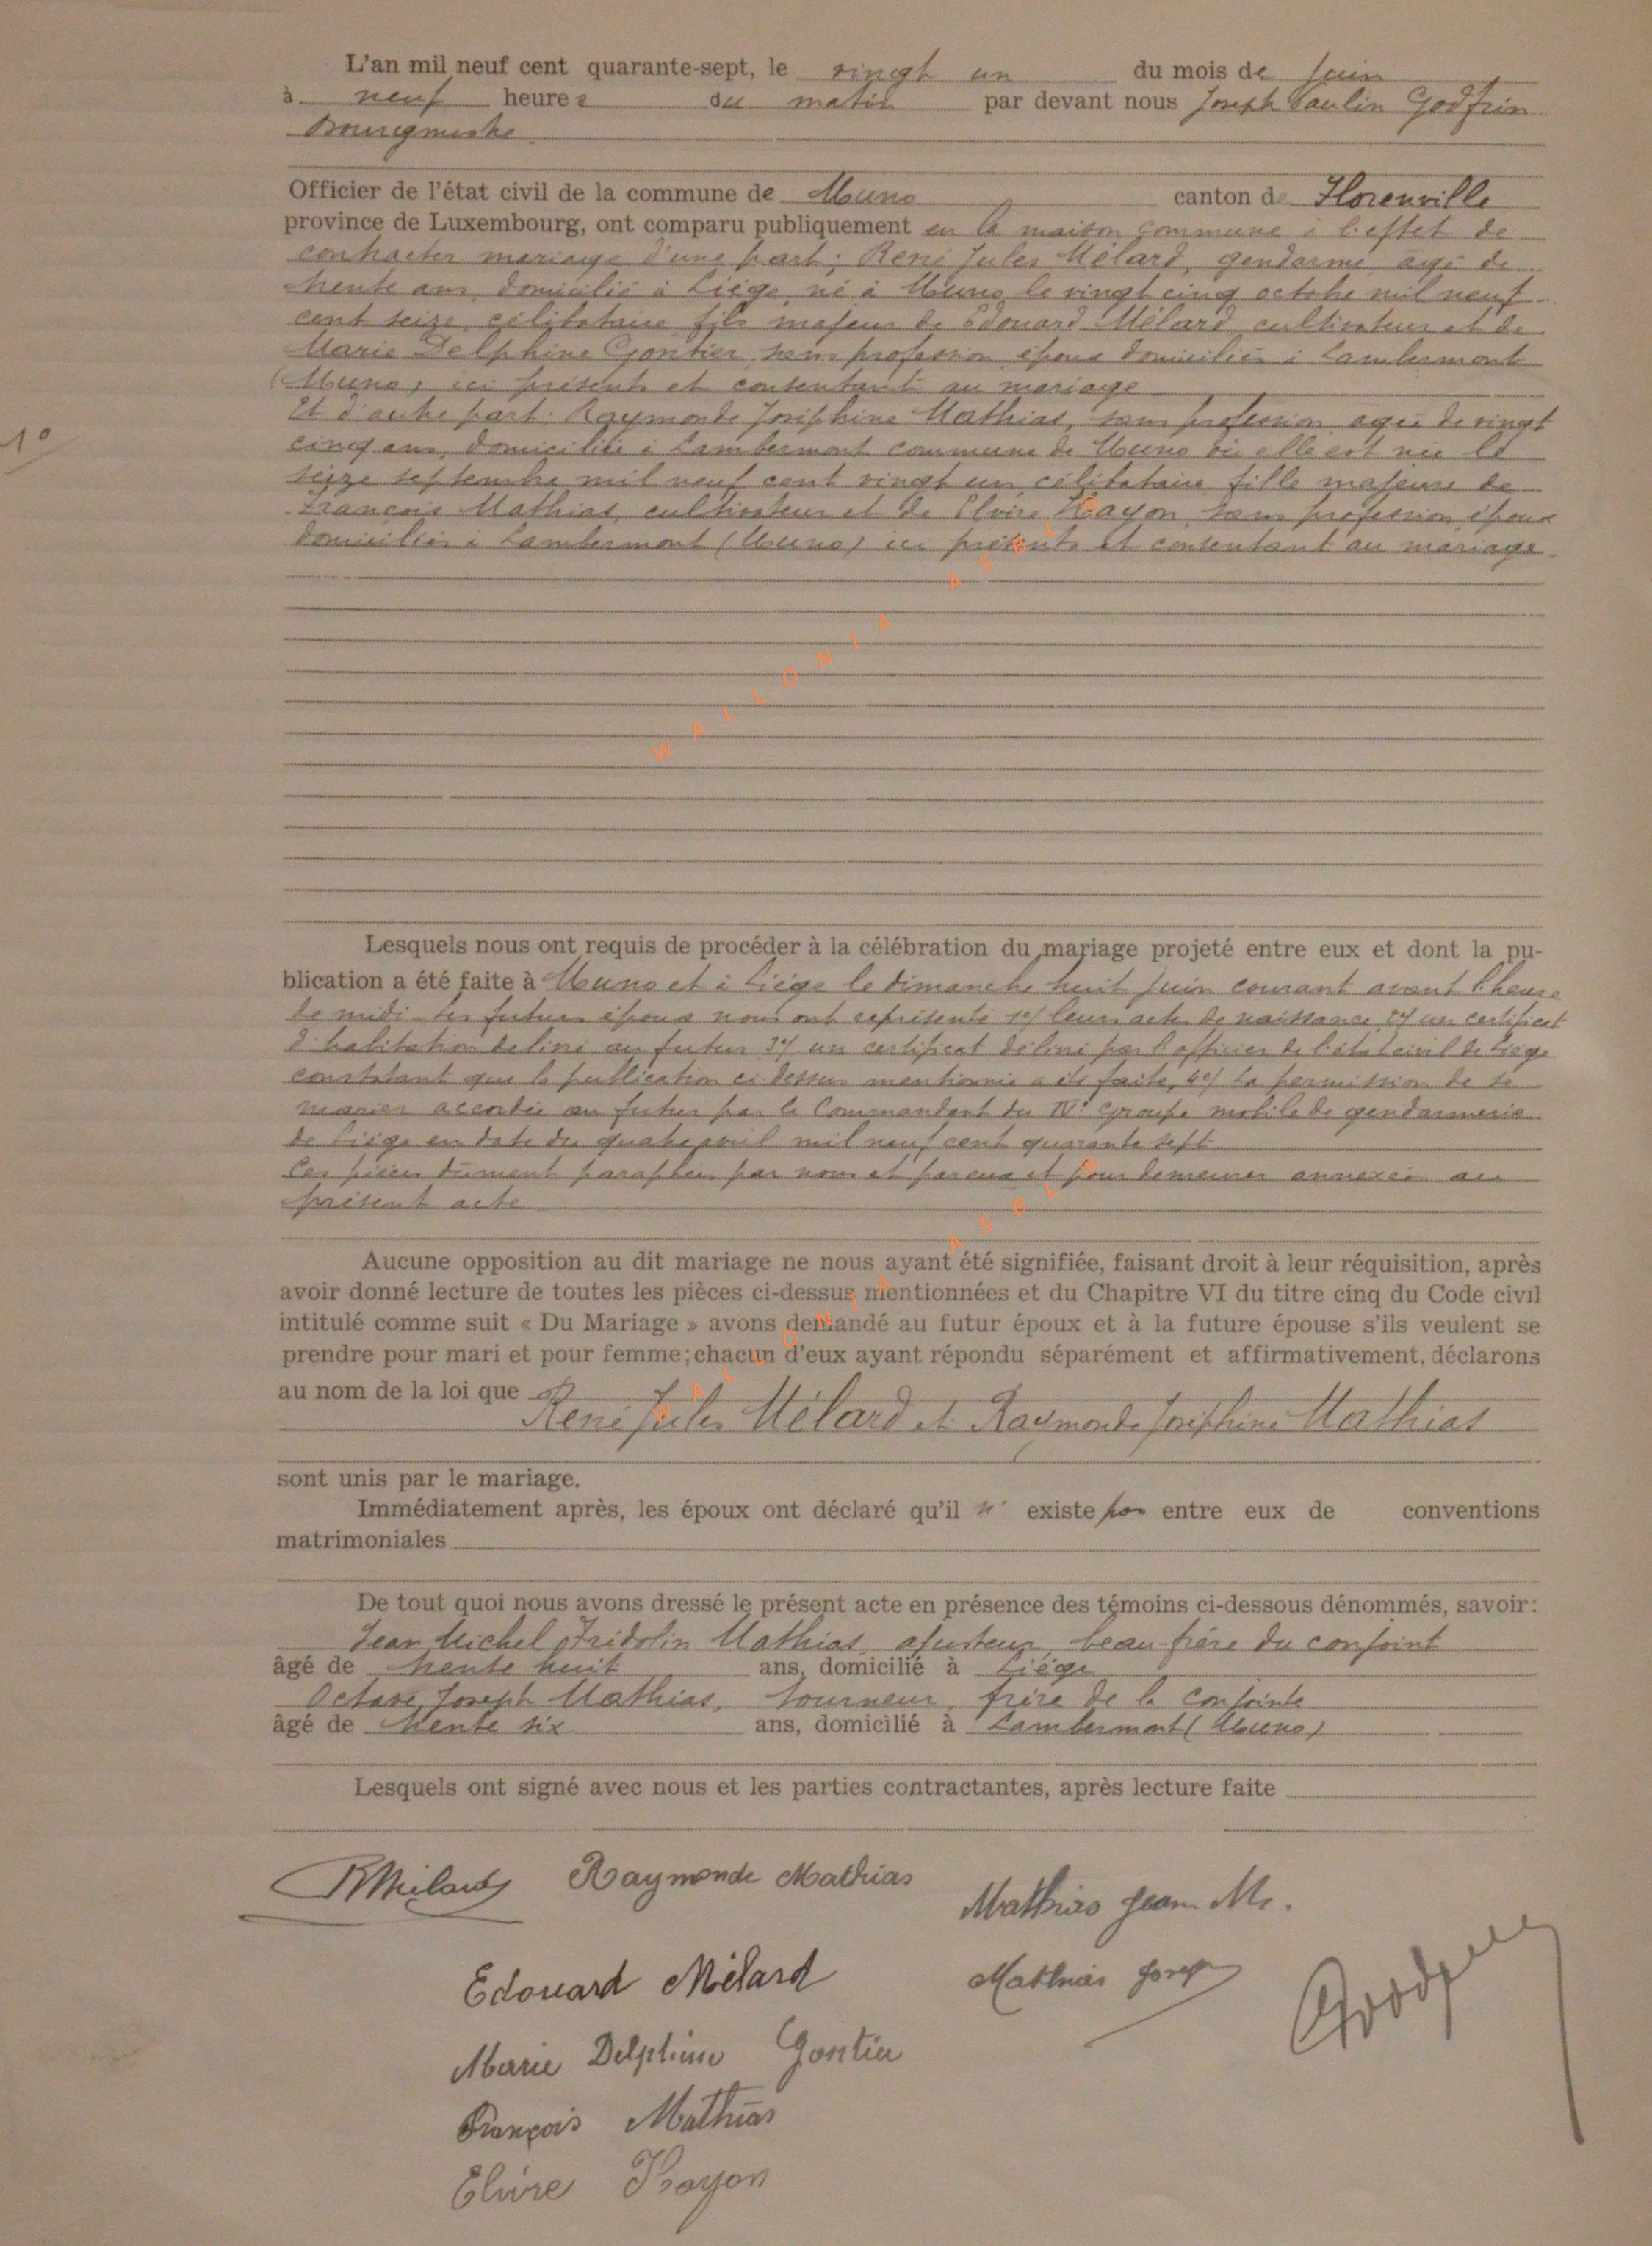 L'an mil neuf cent quarante-sept, le vingt un du mois de juin
à neuf heures du matin par devant nous Joseph Paulin Godfrin
Bourgmestre
Officier de l'état civil de la commune de Muno canton de Florenville
province de Luxembourg, ont comparu publiquement en la maison commune à l'effet de
contracter mariage d'une part: René Jules Mélard, gendarme agé de
trente ans, domicilié à Liége, né à Muno le vingt cinq octobre mil neuf
cent seize, célibataire fils majeur de Edouard Mélard cultivateur et de
Marie Delphine Gontier, sans profession époux domiciliés à Lambermont
(Muno) ici présents et consentant au mariage
Et d'autre part: Raymonde Joséphine Mathias, sans profession agée de vingt
1°
cinq ans, domiciliée à Lambermont commune de Muno où elle est née le
seize septembre mil neuf cent vingt un, célibataire fille majeure de
François Mathias, cultivateur et de Elvire sans profession époux
domiciliés à Lambermont (Muno) ici présents et consentant au mariage
WALLONIA ASBL
Lesquels nous ont requis de procéder à la célébration du mariage projeté entre eux et dont la pu-
blication a été faite à Muno et à Liége le dimanche huit juin courant avant l'heure
de midi les futurs époux nous ont représenté 1°/ leurs actes de naissance 2°/ un certificat
d'habitation délivré au futur 3°/ un certificat délivré par l'officier de l'état civil de Liége
constatant que la publication ci-dessus mentionnée a été faite, 4°/ la permission de se
marier accordée au futur par le Commandant du IV° groupe mobile de gendarmerie
de Liége en date du quatre avril mil neuf cent quarante sept
Ces pièces dûment paraphées par nous et par eux et pour demeurer annexées au
présent acte
WALLONIA ASBL
Aucune opposition au dit mariage ne nous ayant été signifiée, faisant droit à leur réquisition, après
avoir donné lecture de toutes les pièces ci-dessus mentionnées et du Chapitre VI du titre cinq du Code civil
intitulé comme suit « Du Mariage » avons demandé au futur époux et à la future épouse s'ils veulent se
prendre pour mari et pour femme; chacun d'eux ayant répondu séparément et affirmativement, déclarons
au nom de la loi que
René Jules Mélard et Raymonde Joséphine Mathias
sont unis par le mariage.
Immédiatement après, les époux ont déclaré qu'il n' existe pas entre eux de conventions
matrimoniales
De tout quoi nous avons dressé le présent acte en présence des témoins ci-dessous dénommés, savoir:
Jean Michel Fridolin Mathias ajusteur, beau-frère du conjoint
âgé de trente huit ans, domicilié à Liége
Octave Joseph Mathias, tourneur, frère de la conjointe
âgé de trente six ans, domicilié à Lambermont (Muno)
Lesquels ont signé avec nous et les parties contractantes, après lecture faite
RMélard Raymonde Mathias
Mathias Jean M.
Edouard Mélard
Mathias Joseph
Marie Delphine Gontier
François Mathias
Elvire